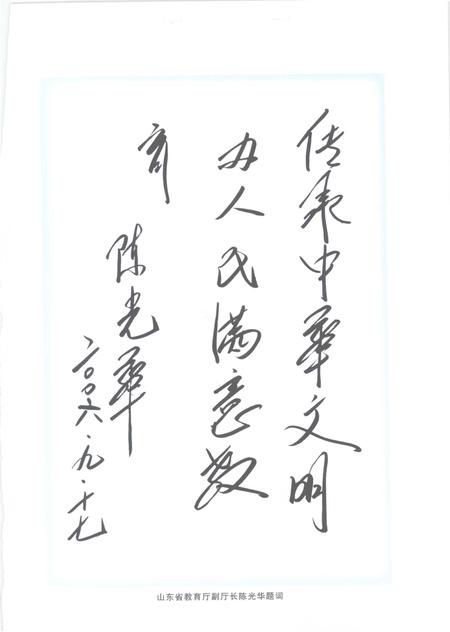 传承中华文明
办人民满意教
育
陈光华
二〇〇六·九·十七
山东省教育厅副厅长陈光华题词